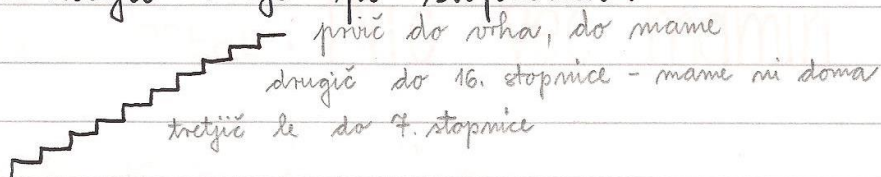 prvič do vrha, do mame
drugič do 16. stopnice - mame ni doma
tretjič le do 7. stopnice